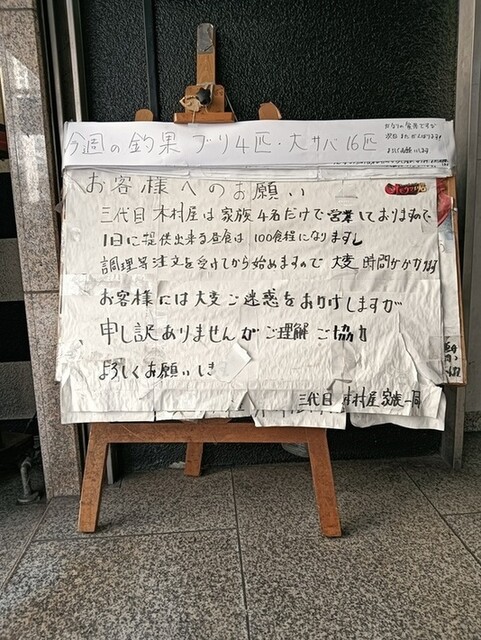 今週の釣果 ブリ4匹・大サバ16匹
お客様へのお願い
三代目 木村屋は家族4名だけで営業しておりますので
1日に提供出来る昼食は100食程になりますし
調理等注文を受けてから始めますので大変時間がかかります
お客様には大変ご迷惑をおかけしますが
申し訳ありませんがご理解ご協力
よろしくお願いしま
三代目 木村屋 家族一同